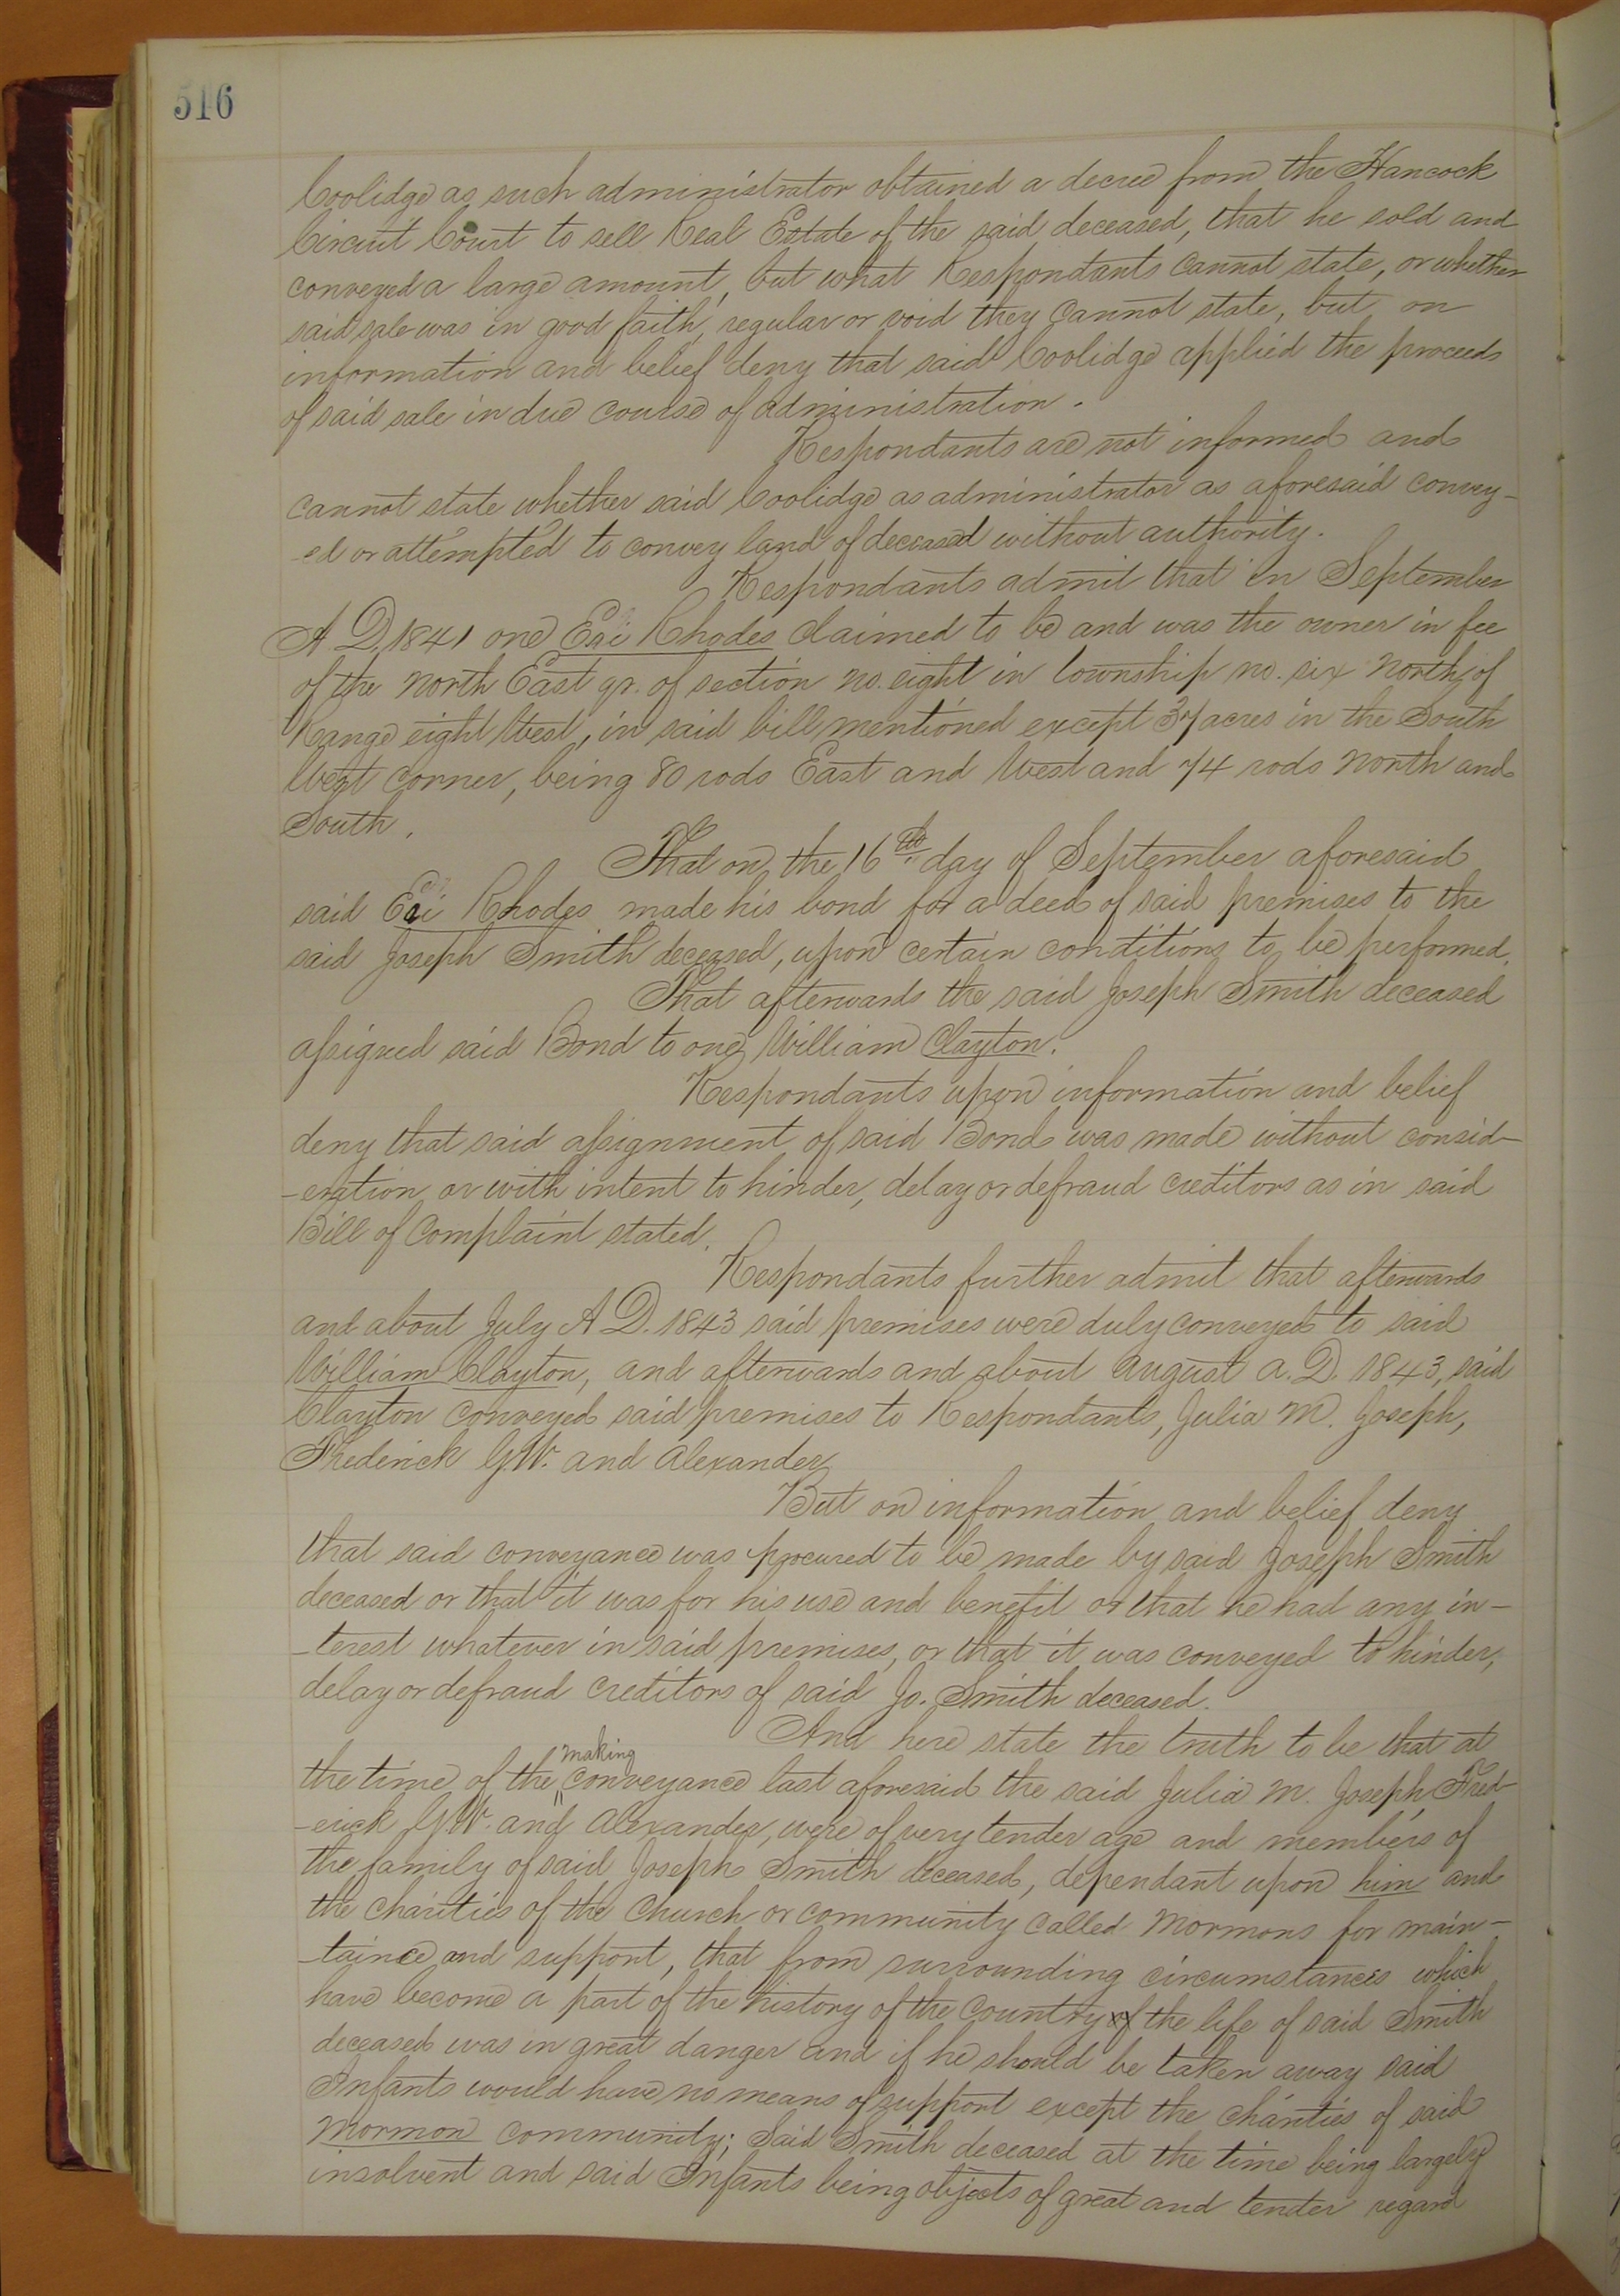 516
Coolidge as such administrator obtained a decree from the Hancock
Circuit Court to sell Real Estate of the said deceased, that he sold and
conveyed a large amount, but what Respondants cannot state, or whether
said sale was in good faith, regular or void they cannot state, but on
information and belief deny that said Coolidge applied the proceeds
of said sale in due course of administration.
Respondants are not informed and
cannot state whether said Coolidge as administrator as aforesaid convey-
-ed or attempted to convey land of deceased without authority.
Respondants admit that in September
A D. 1841 one Eri Rhodes claimed to be and was the owner in fee
of the North East qr. of section no. eight in township no. six North, of
Range eight West, in said bill mentioned except 37 acres in the South
West corner, being 80 rods East and West and 74 rods North and
South.
That on the 16th day of September aforesaid
said Eri Rhodes made his bond for a deed of said premises to the
said Joseph Smith deceased, upon certain conditions to be performed.
That afterwards the said Joseph Smith deceased
assigned said Bond to one William Clayton.
Respondants upon information and belief
deny that said assignment of said Bond was made without consid-
-eration or with intent to hinder, delay or defraud creditors as in said
Bill of Complaint stated.
Respondants further admit that afterwards
and about July A D. 1843 said premises were duly conveyed to said
William Clayton, and afterwards and about August A.D. 1843, said
Clayton conveyed said premises to Respondants, Julia M. Joseph,
Frederick G.W. and Alexander
But on information and belief deny
that said conveyance was procured to be made by said Joseph Smith
deceased or that it was for his use and benefit or that he had any in-
-terest whatever in said premises, or that it was conveyed to hinder,
delay or defraud creditors of said Jo. Smith deceased.
And here state the truth to be that at
the time of the making conveyance last aforesaid the said Julia M. Joseph, Fred-
-erick G W. and Alexander, were of very tender age and members of
the family of said Joseph Smith deceased, dependant upon him and
the charities of the Church or community called Mormons for main-
-taince and support, that from surrounding circumstances which
have become a part of the history of the Country of the life of said Smith
deceased was in great danger and if he should be taken away said
Infants would have no means of support except the charities of said
Mormon community; Said Smith deceased at the time being largely
insolvent and said Infants being objects of great and tender regard